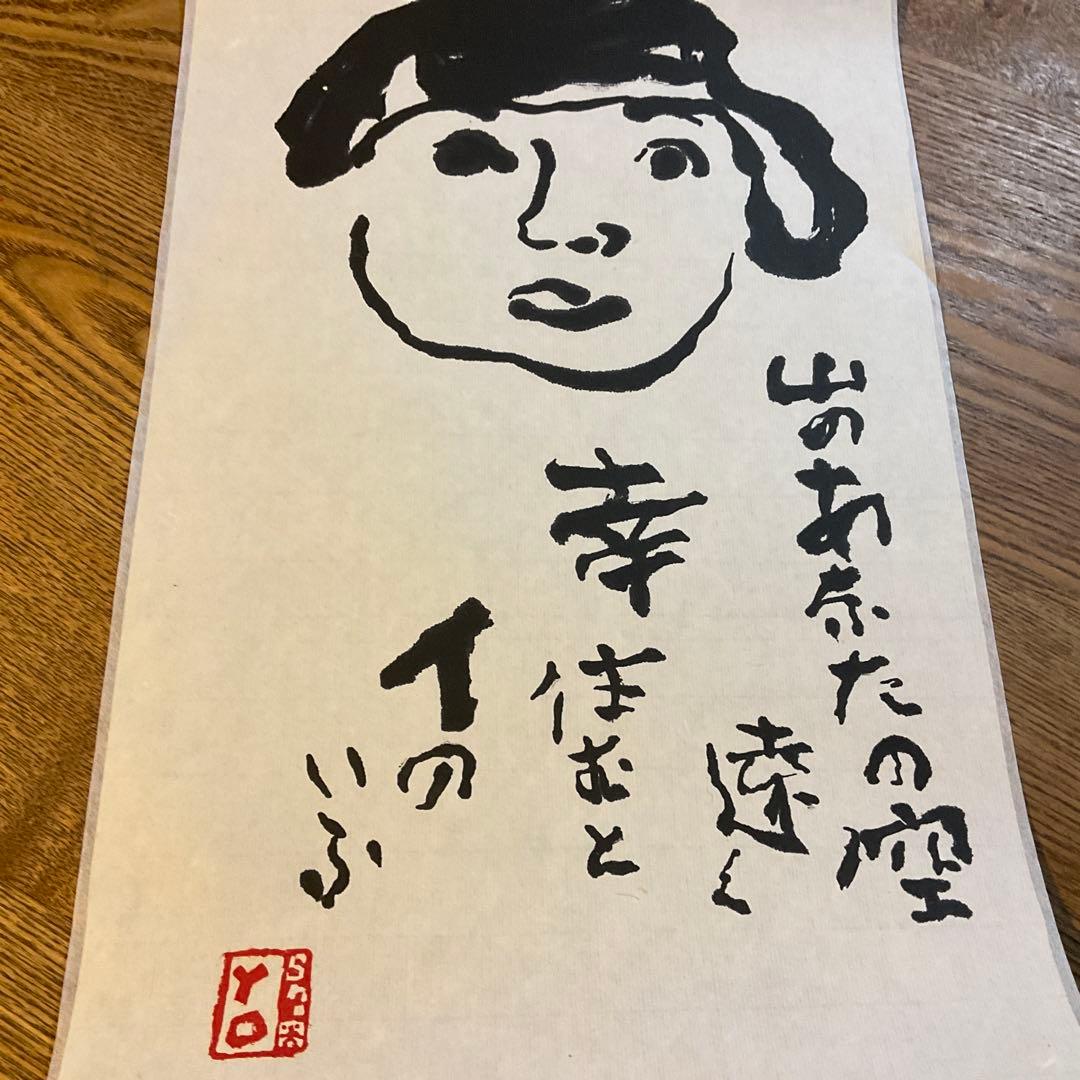 山のあなたの空
遠く
幸住むと
人の
いふ
YO